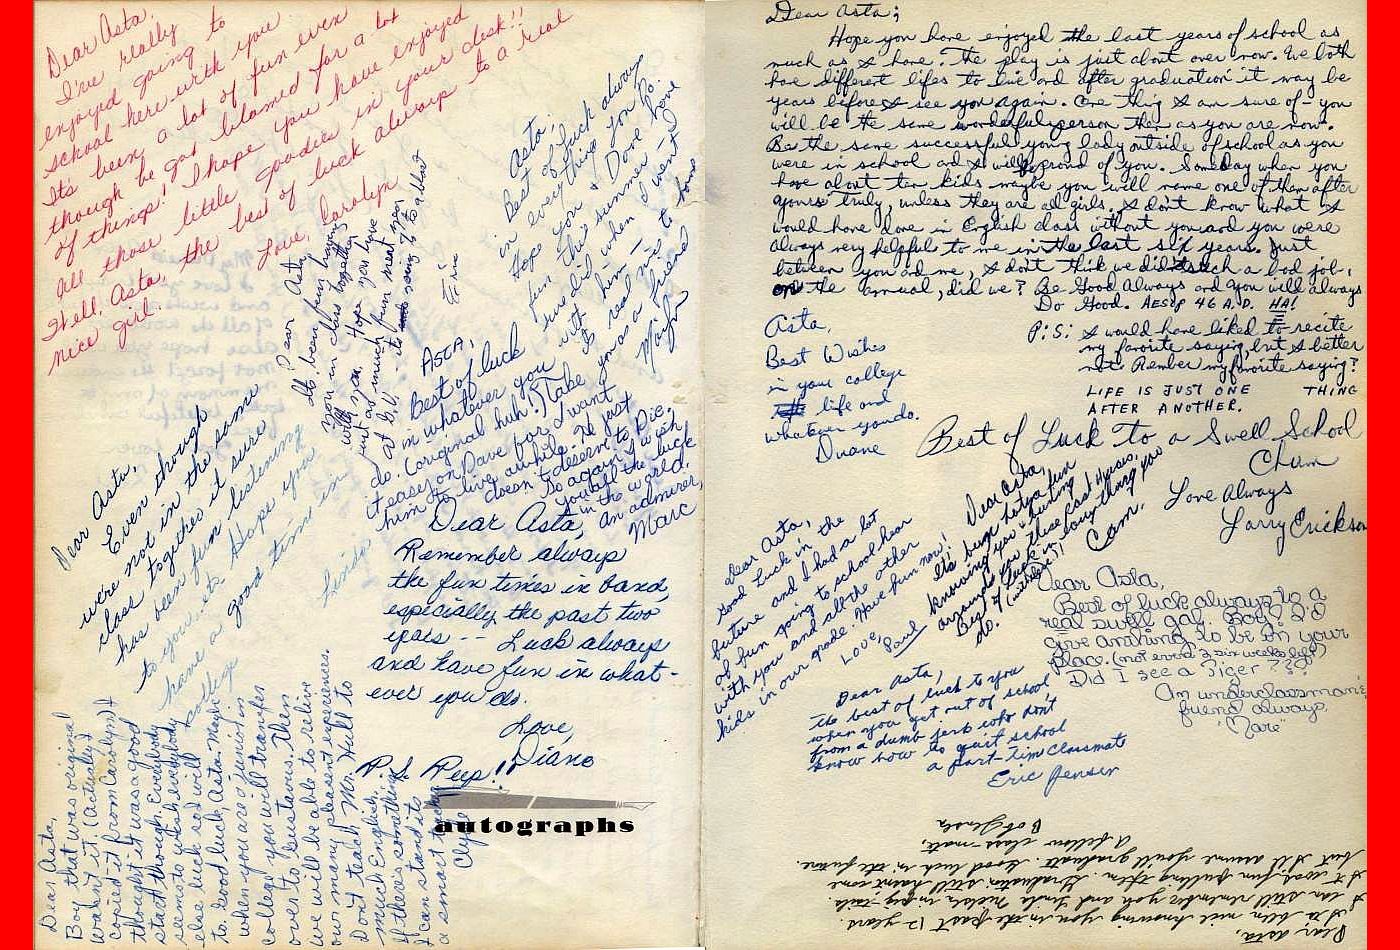 Dear Asta,
I've really
enjoyed going to
school here with you
It's been a lot of fun even
though be got blamed for a lot
of things! I hope you have enjoyed
All those little goodies in your desk!!
Well, Asta, the best of luck always to a real
nice girl.
Love,
Carolyn
Dear Asta
It's been fun having
you in class together
with you. Hope you have
just as much fun next year
at
Erin
Asta,
Best of luck always
in everything you do.
Hope you & Dave have
fun this summer - I
sure did when I went
with him -
No really - me to
you as a friend
Marlyn
ASTA,
Best of luck
in whatever you
do. (original huh?) Take
it easy on Dave boy I want
him to live awhile. He just
doesn't deserve to Die.
So again I wish
you all the luck
in the world.
An admirer,
Marc
Dear Asta,
Even though
we're not in the same
class together it sure
has been fun listening
to you
Hope you
have a good time in
college
Linda
Dear Asta,
Remember always
the fun times in band,
especially the past two
years -- Luck always
and have fun in what-
ever you do.
Love,
Diane
P.S. Peep!!
Dear Asta,
Boy that was original
wasn't it (actually I
copied it from Carolyn) I
thought it was a good
start though. Everybody
seems to wish everybody
else luck so I will
to. Good luck, Asta. Maybe
when you are a junior in
college you will transfer
over to Gustavus. Then
we will be able to relive
our many pleasent experiences.
Don't teach Mr. Hull to
much English,
If there's something
I can stand its
a smart teacher
Clyde
autographs
Dear Asta;
Hope you have enjoyed the last years of school as
much as I have. The play is just about over now. We both
have different lifes to live and after graduation it may be
years before I see you again. One thing I am sure of - you
will be the same wonderful person then as you are now.
Be the same successful young lady outside of school as you
were in school and I will be proud of you. Someday when you
have about ten kids maybe you will name one of them after
yours truly, unless they are all girls. I don't know what I
would have done in English class without you and you were
always very helpful to me in the last six years. Just
between you and me, I don't think we did such a bad job,
on the annual, did we? Be Good Always and you will always
Do Good. AESOP 46 A.D. HA!
P.S: I would have liked to recite
my favorite saying, but I better
not. Rember my favorite saying?
LIFE IS JUST ONE THING
AFTER ANOTHER.
Best of Luck To a Swell School
Chum
Love Always
Larry Erickson
Asta,
Best Wishes
in your college
life and
whatever you do.
Duane
Dear Asta,
It's been lotsa fun
knowing you & having
around you these past 4 years.
Best of luck in everything you
do.
Cam.
Dear Asta,
Good Luck in the
future and I had a lot
of fun going to school hear
with you and all the other
kids in our grade. Have fun now!
Love,
Paul
Dear Asta,
Best of luck always to a
real swell gal. Boy! I'd
give anything to be in your
place. (not even 3 six weeks left)
Did I see a Tiger ???
An underclassman &
friend always,
"Mare"
Dear Asta,
The best of luck to you
when you get out of school
from a dumb jerk who don't
know how to quit school
a part-time classmate
Eric Jensen
Dear Asta,
It's been nice knowing you in the past 12 years.
I can still remember you and Linda Tucker in pig-tails.
It was fun pulling them. Graduation still hasn't come
but I'll assume you'll graduate. Good luck in the future.
A fellow class-mate,
Bob Jensen